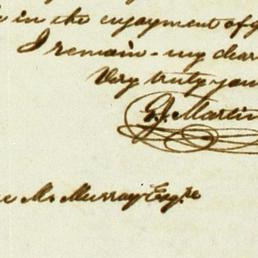 in the enjoyment of
I remain - my dear
Very truly
G. Martin
M. Murray Esqre